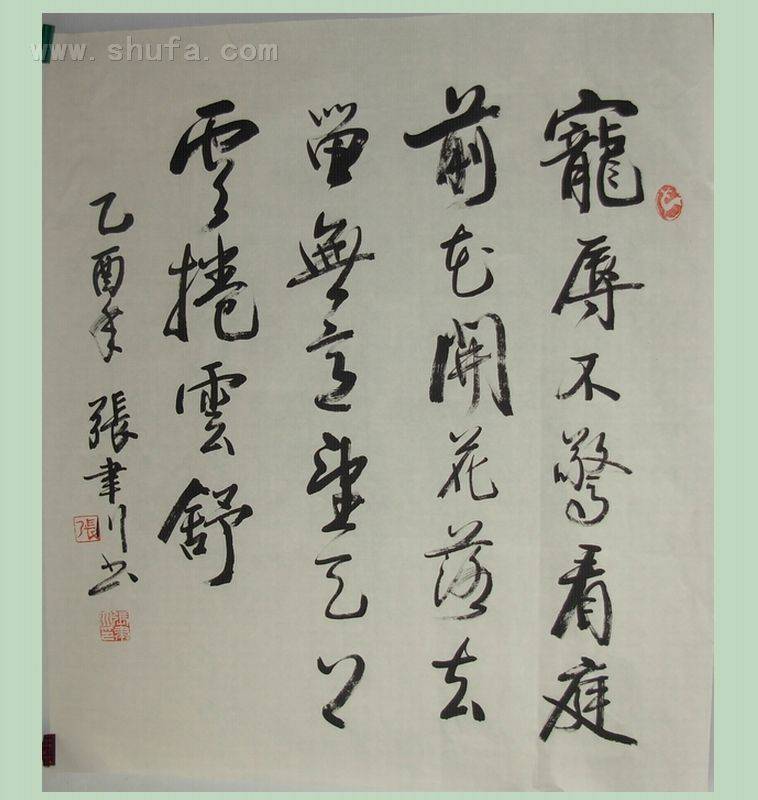 www.shufa.com
寵辱不驚看庭
前花開花落去
留無意望天上
雲捲雲舒
乙酉年 張聿川书
張